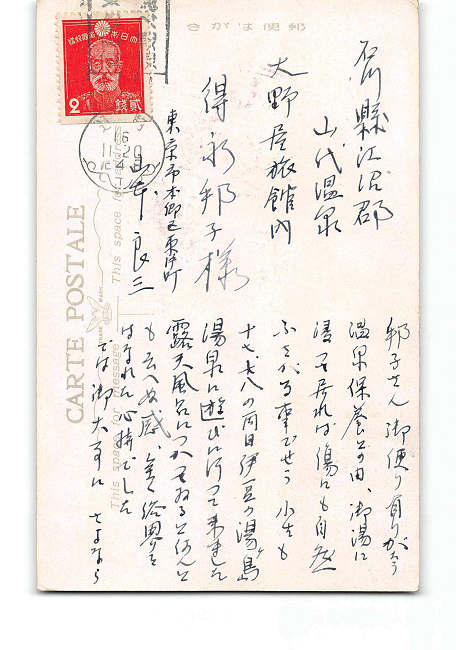 郵便はがき
大日本帝国郵便
2
貳錢
石川縣江沼郡
山代温泉
大野屋旅館内
得永邦子様
東京市本郷区東片町
山本良三
邦子さん 御便り有りがたう
温泉保養との由、御湯に
浸って居れば傷にも自然
ふさがる事でせう 小生も
十七、八の両日伊豆の湯ヶ島
湯泉に遊びに行って来ました
露天風呂につかってゐると何んと
も云へぬ感、全く俗界を
はなれた心持でした
では御大事に さよなら
CARTE POSTALE
This space for message
This space for address